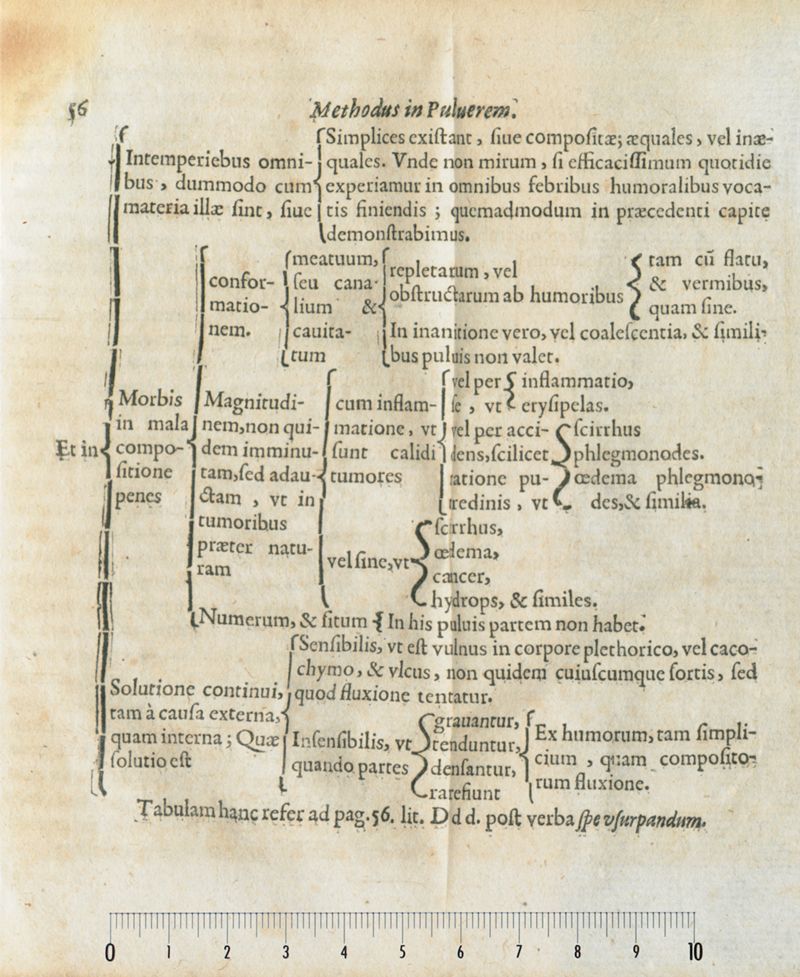 56
Methodus in Puluerem.
Et in
Intemperiebus omni-
bus, dummodo cum
materia illæ ſint, ſiue
Simplices exiſtant, ſiue compoſitæ; æquales, vel inæ-
quales. Vnde non mirum, ſi efficaciſſimum quotidie
experiamur in omnibus febribus humoralibus voca-
tis finiendis ; quemadmodum in præcedenti capite
demonſtrabimus.
Morbis
in mala
compo-
ſitione
penes
confor-
matio-
nem.
meatuum,
ſeu cana-
lium &
cauita-
tum
repletarum, vel
obſtructarum ab humoribus
tam cū flatu,
& vermibus,
quam ſine.
In inanitione vero, vel coaleſcentia, & ſimili-
bus puluis non valet.
Magnitudi-
nem, non qui-
dem imminu-
tam, ſed adau-
ctam , vt in
tumoribus
præter natu-
ram
cum inflam-
matione, vt
ſunt calidi
tumores
vel per
ſe , vt
inflammatio,
eryſipelas.
vel per acci-
dens, ſcilicet
ratione pu-
tredinis , vt
ſcirrhus
phlegmonodes.
œdema phlegmono-
des, & ſimilia.
vel ſine, vt
ſcrrhus,
œdema,
cancer,
hydrops, & ſimiles.
Numerum, & ſitum In his puluis partem non habet.
Solutione continui,
tam à cauſa externa,
quam interna ; Quæ
ſolutio eſt
Senſibilis, vt eſt vulnus in corpore plethorico, vel caco-
chymo, & vlcus , non quidem cuiuſcumque ſortis, ſed
quod fluxione tentatur.
Inſenſibilis, vt
quando partes
grauantur,
tenduntur,
denſantur,
rarefiunt
Ex humorum, tam ſimpli-
cium , quam compoſito-
rum fluxione.
Tabulam hanc refer ad pag. 56. lit. D d d. poſt verba ſpe vſurpandum.
0 1 2 3 4 5 6 7 8 9 10